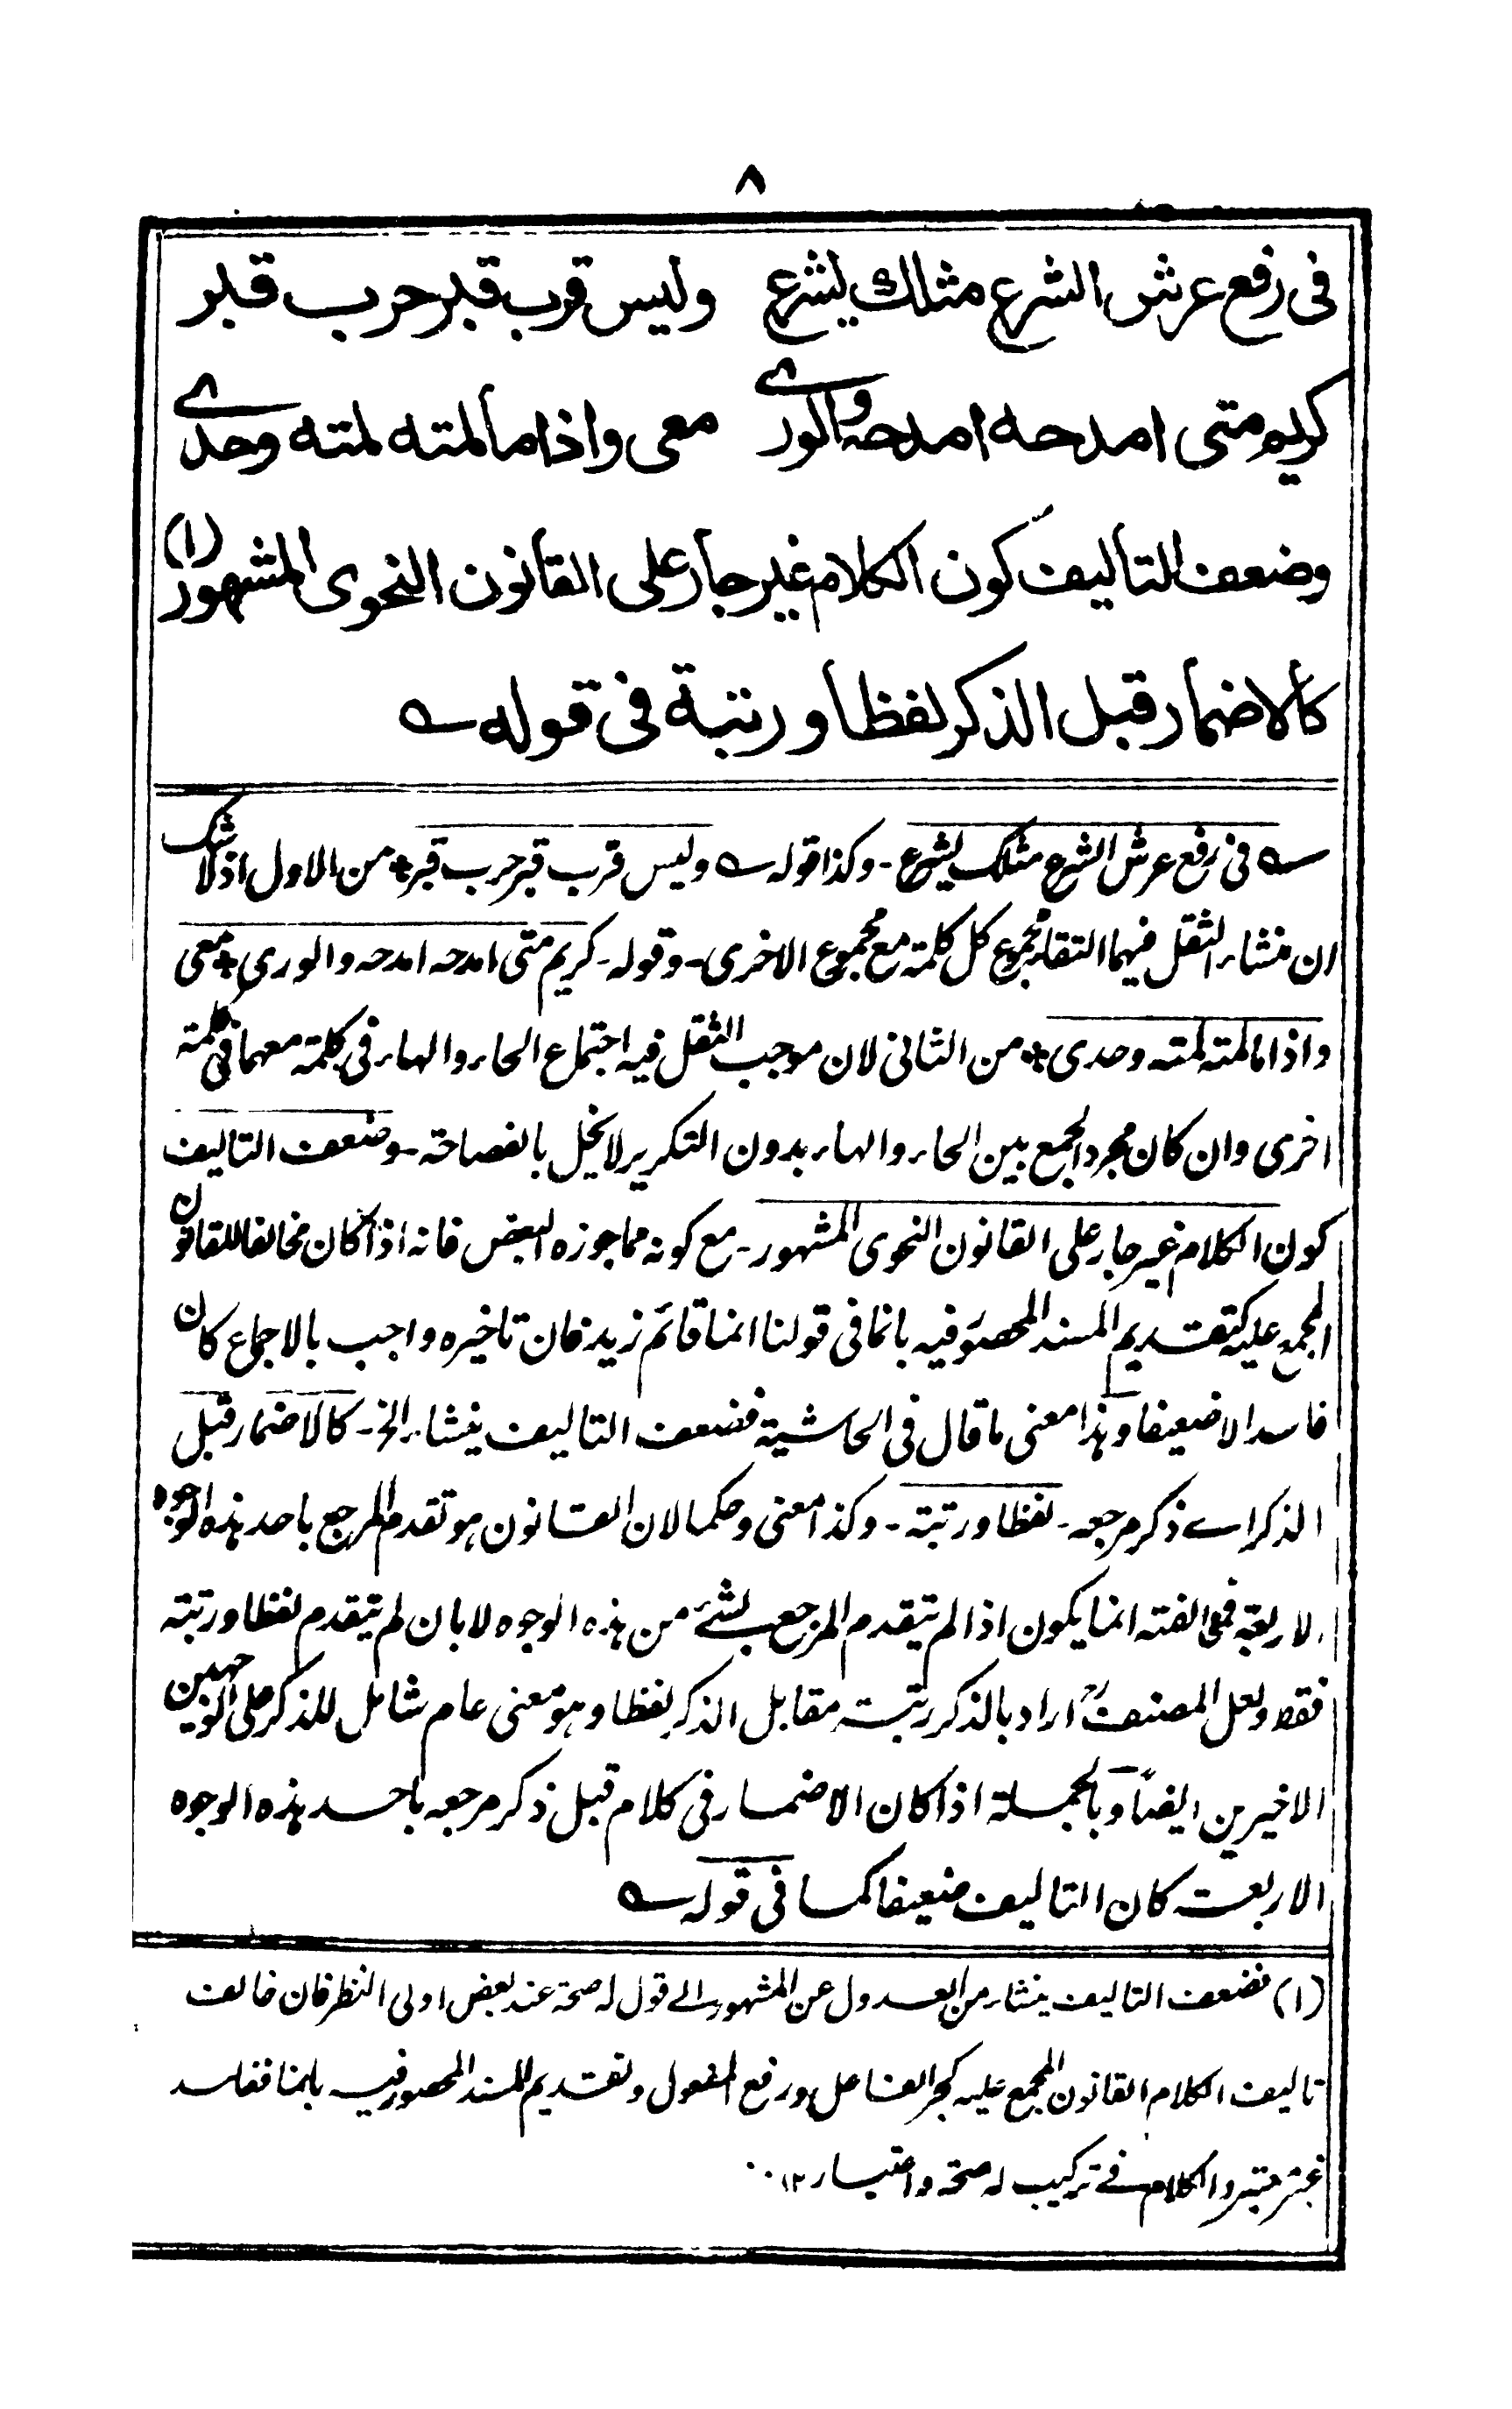 ٨
فى رفع عرش الشرع مثلك يشرع وليس قرب قبر حرب قبر
كريم متى امدحه امدحه والورى معى واذا ما لمته لمته وحدى
وضعف التأليف كون الكلام غير جار على القانون النحوى المشهور (١)
كالاضمار قبل الذكر لفظا و رتبة فى قوله
فى رفع عرش الشرع مثلك يشرع - وكذا قوله وليس قرب قبر حرب قبر * من الاول اذ لا شك
ان منشاء الثقل فيهما التقاء مجموع كل كلمة مع مجموع الاخرى - وقوله - كريم متى امدحه امدحه والورى * معى
واذا ما لمته لمته وحدى * من الثانى لان موجب الثقل فيه اجتماع الحاء والهاء فى كلمة معهما فى كلمة
اخرى وان كان مجرد الجمع بين الحاء والهاء بدون التكرير لا يخل بالفصاحة - وضعف التاليف
كون الكلام غير جار على القانون النحوى المشهور - مع كونه مما جوزه البعض فانه اذا كان مخالفا للقانون
المجمع عليه كتقديم المسند المحصور فيه بانما فى قولنا انما قائم زيد فان تاخيره واجب بالاجماع كان
فاسدا لا ضعيفا وهذا معنى ما قال فى الحاشية فضعف التاليف ينشاء الخ - كالاضمار قبل
الذكر اے ذكر مرجعه - لفظا ورتبة - وكذا معنى وحكما لان القانون هو تقدم المرجع باحد هذه الوجوه
الاربعة فمخالفته انما يكون اذا لم يتقدم المرجع بشئ من هذه الوجوه لا بان لم يتقدم لفظا ورتبة
فقط ولعل المصنف اراد بالذكر رتبة مقابل الذكر لفظا وهو معنى عام شامل للذكر على الوجهين
الاخيرين ايضا وبالجملة اذا كان الاضمار فى كلام قبل ذكر مرجعه باحد هذه الوجوه
الاربعة كان التاليف ضعيفا كما فى قوله
(١) فضعف التاليف ينشاء من العدول عن المشهور الے قول له صحة عند بعض اولى النظر فان خالف
تاليف الكلام القانون المجمع عليه كجر الفاعل ورفع المفعول وتقديم المسند المحصور فيه بانما ففاسد
غير معتبر والكلام فے تركيب له صحة واعتبار ١٢